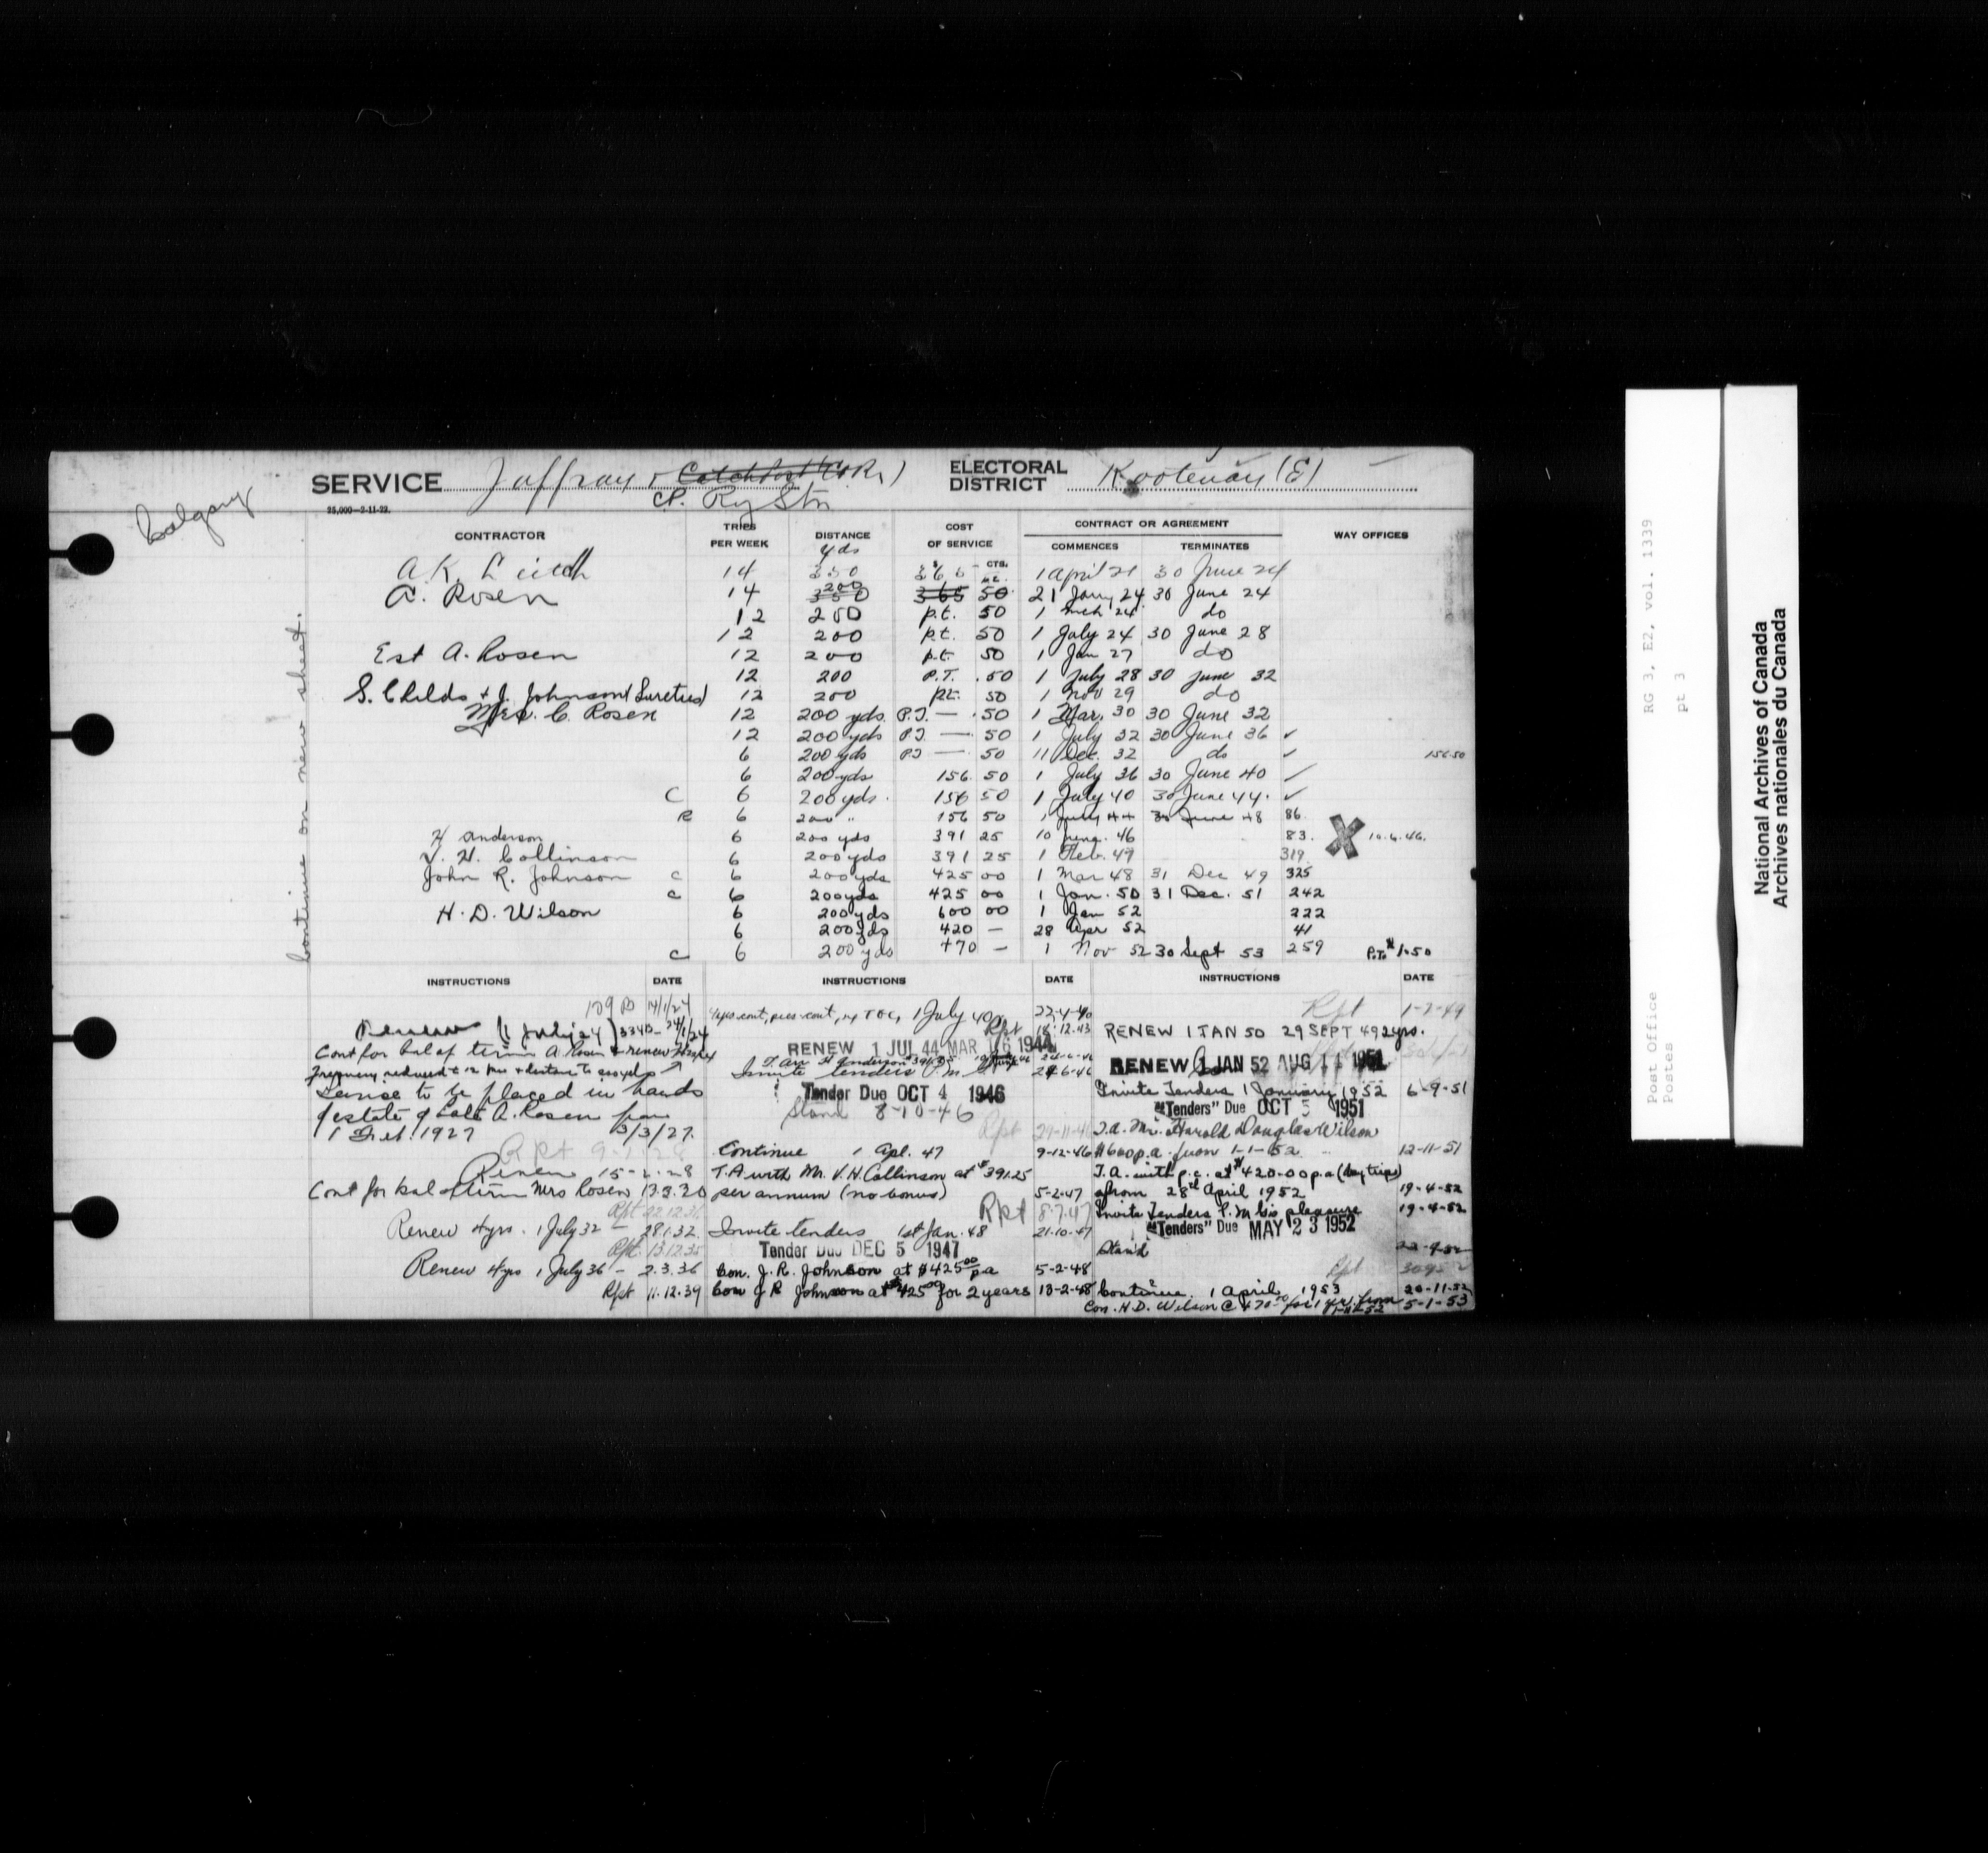 SERVICE Jaffray & Catch Post (C.P.R.) ELECTORAL DISTRICT Kootenay (E)
C.P. Ry Stn
25,000-2-11-22.
Calgary
continue on new sheet.
CONTRACTOR TRIPS PER WEEK DISTANCE COST OF SERVICE CONTRACT OR AGREEMENT COMMENCES TERMINATES WAY OFFICES
yds $ CTS.
A. K. Leitch 14 350 365 1 April 21 30 June 24
A. Rosen 14 350 200 365 50 21 Jany 24 30 June 24
12 200 p.t. 50 1 Mch 24 do
12 200 p.t. 50 1 July 24 30 June 28
Est A. Rosen 12 200 p.t. 50 1 Jan 27 do
12 200 P.T. .50 1 July 28 30 June 32
S. Childs & J. Johnson (Sureties) 12 200 p.t. 50 1 Nov 29 do
Mrs. C. Rosen 12 200 yds. P.T. — .50 1 Mar. 30 30 June 32
12 200 yds P.T. — . 50 1 July 32 30 June 36 ✓
6 200 yds P.T. — . 50 11 Dec. 32 do ✓ 156.50
6 200 yds 156. 50 1 July 36 30 June 40 ✓
C 6 200 yds. 156 50 1 July 40 30 June 44. ✓
R 6 200 " 156 50 1 July 44 30 June 48 86
H Anderson 6 200 yds 391 25 10 June. 46 83. X 10.6.46.
V. H. Collinson 6 200 yds 391 25 1 Feb. 47 319
John R. Johnson C 6 200 yds 425 00 1 Mar 48 31 Dec 49 325
C 6 200 yds 425 00 1 Jan. 50 31 Dec. 51 242
H. D. Wilson 6 200 yds 600 00 1 Jan 52 222
6 200 yds 420 — 28 Apr 52 41
C 6 200 yds 470 — 1 Nov 52 30 Sept 53 259 P.T. $1.50
INSTRUCTIONS DATE INSTRUCTIONS DATE INSTRUCTIONS DATE
129 B 14/1/24
Renew (1 July 24) 334B- 24/1/24
Cont for bal of term A. Rosen & renew
Frequency reduced to 12
Service to be placed in hands
of estate of late A. Rosen from
1 Feb. 1927 3/3/27.
Rpt
Renew 15-2-28
Cont for bal of term Mrs Rosen 13.3.30
Rpt 22.12.31
Renew 4 yrs. 1 July 32 - 28.1.32.
Rpt. 13.12.35
Renew 4 yrs 1 July 36 - 2.3.36
Rpt 11.12.39
1 July 40 22-4-40
Rpt 18.12.43
RENEW 1 JUL 44 MAR 16 1944
T. Arr H Anderson
Invite tenders P.M. 24-6-46
Tender Due OCT 4 1946
Stand 8-10-46
Rpt
Continue 1 Apl. 47 9-12-46
T.A. with Mr. V. H. Collinson at $391.25
per annum (no bonus) 5-2-47
Rpt 8.7.47
Invite tenders 1st Jan. 48 21-10-47
Tender Due DEC 5 1947
Con. J. R. Johnson at $425.00 p a 5-2-48
Con J R Johnson at $425.00 for 2 years 13-2-48
Rpt 1-7-49
RENEW 1 JAN 50 29 SEPT 49 2 yrs.
RENEW 1 JAN 52 AUG 11 1951
Invite Tenders 1 January 1952 6-9-51
"Tenders" Due OCT 5 1951
T.A. Mr. Harold Douglas Wilson
$600 p.a. from 1-1-52 12-11-51
T.A. with p.c. at $420.00 p.a (day trips)
from 28th April 1952 19-4-52
Invite Tenders P.M. G's pleasure 19-4-52
"Tenders" Due MAY 23 1952
Stand
Rpt
Continue 1 April, 1953 20-11-52
Con. H. D. Wilson @ 470.00 for 1 yr. from 1-11-52 5-1-53
RG 3, E2, vol. 1339
pt 3
Post Office
Postes
National Archives of Canada
Archives nationales du Canada